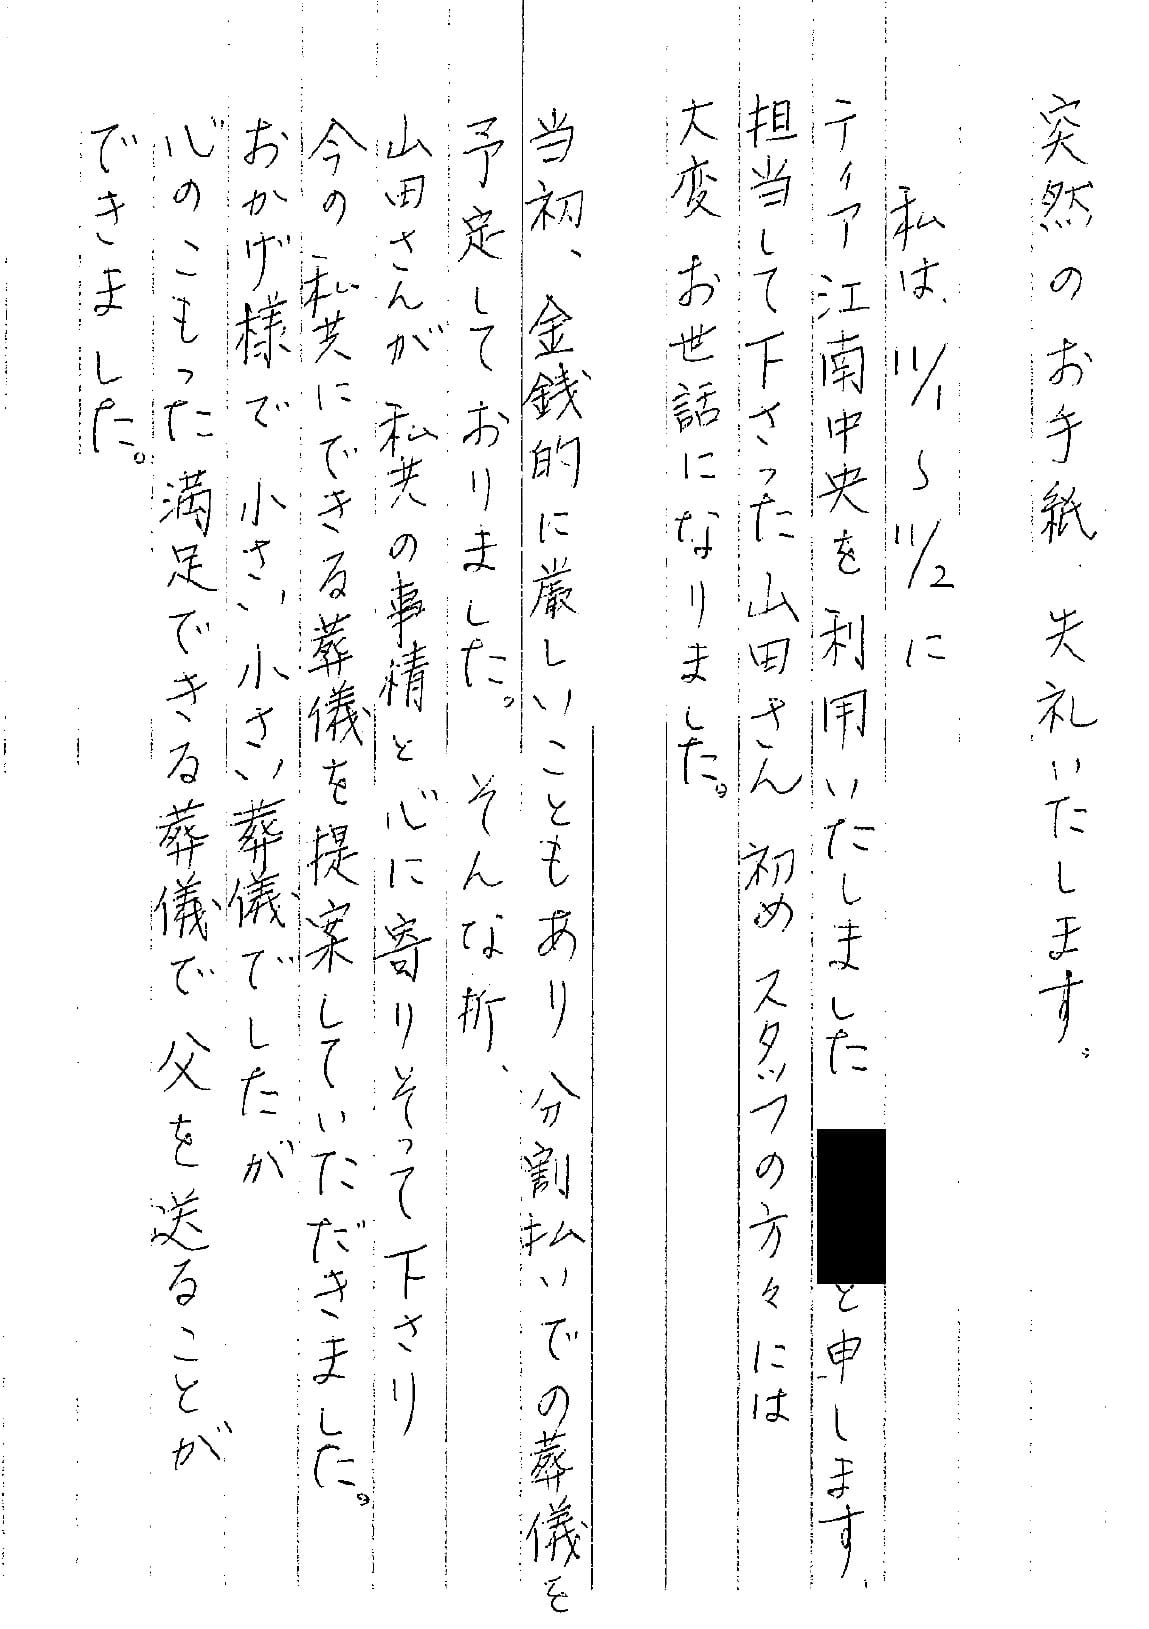 突然のお手紙、失礼いたします。
私は、11/1〜11/2に
ティア江南中央を利用いたしました
と申します、
担当して下さった山田さん初めスタッフの方々には
大変お世話になりました。
当初、金銭的に厳しいこともあり分割払いでの葬儀を
予定しておりました。そんな折、
山田さんが私共の事情と心に寄りそって下さり
今の私共にできる葬儀を提案していただきました。
おかげ様で小さい小さい葬儀でしたが
心のこもった満足できる葬儀で父を送ることが
できました。